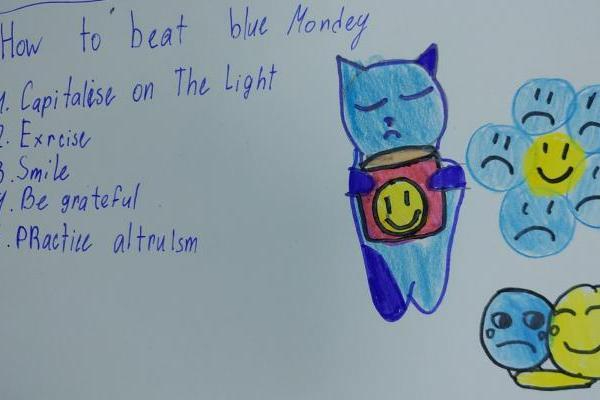 How to beat blue Mondey
1. Capitalise on The Light
2. Exrcise
3. Smile
4. Be grateful
. PRactice altruism